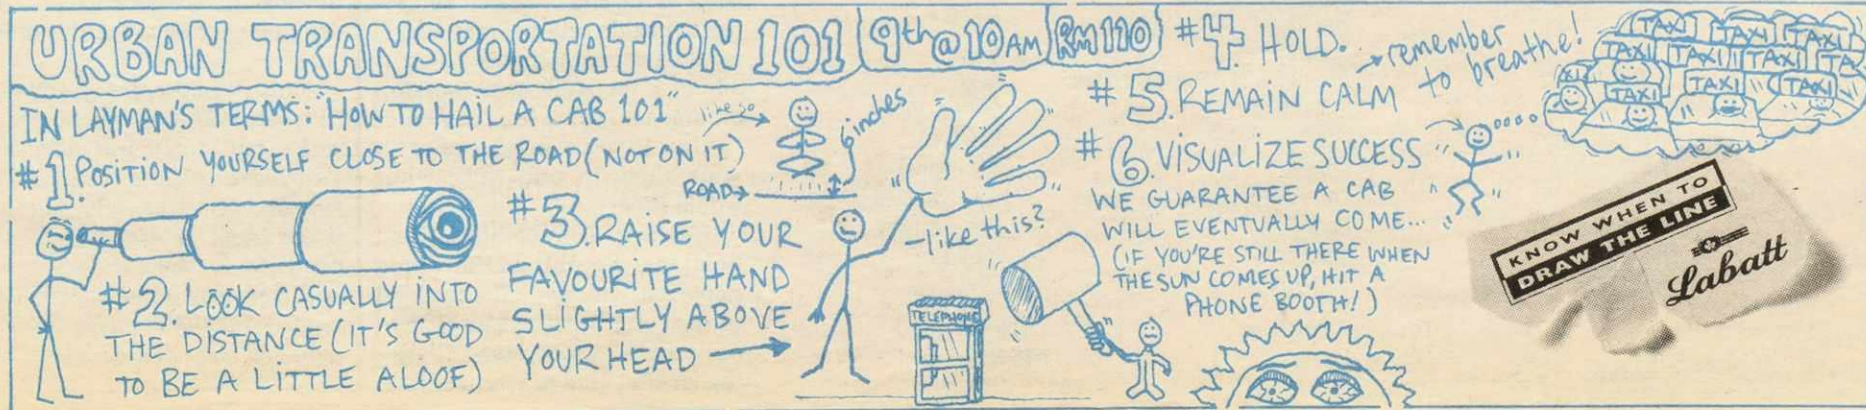 URBAN TRANSPORTATION 101
9th @ 10 AM
RM 110
IN LAYMAN'S TERMS: "HOW TO HAIL A CAB 101"
#1. POSITION YOURSELF CLOSE TO THE ROAD (NOT ON IT)
like so
6 inches
ROAD
#2. LOOK CASUALLY INTO
THE DISTANCE (IT'S GOOD
TO BE A LITTLE ALOOF)
#3. RAISE YOUR
FAVOURITE HAND
SLIGHTLY ABOVE
YOUR HEAD
-like this?
TELEPHONE
#4. HOLD.
#5. REMAIN CALM
remember
to breathe!
#6. VISUALIZE SUCCESS
WE GUARANTEE A CAB
WILL EVENTUALLY COME...
(IF YOU'RE STILL THERE WHEN
THE SUN COMES UP, HIT A
PHONE BOOTH!)
TAXI TAXI TAXI
TAXI TAXI TAXI TA
XI TAXI TAXI TAXI
KNOW WHEN TO
DRAW THE LINE
Labatt